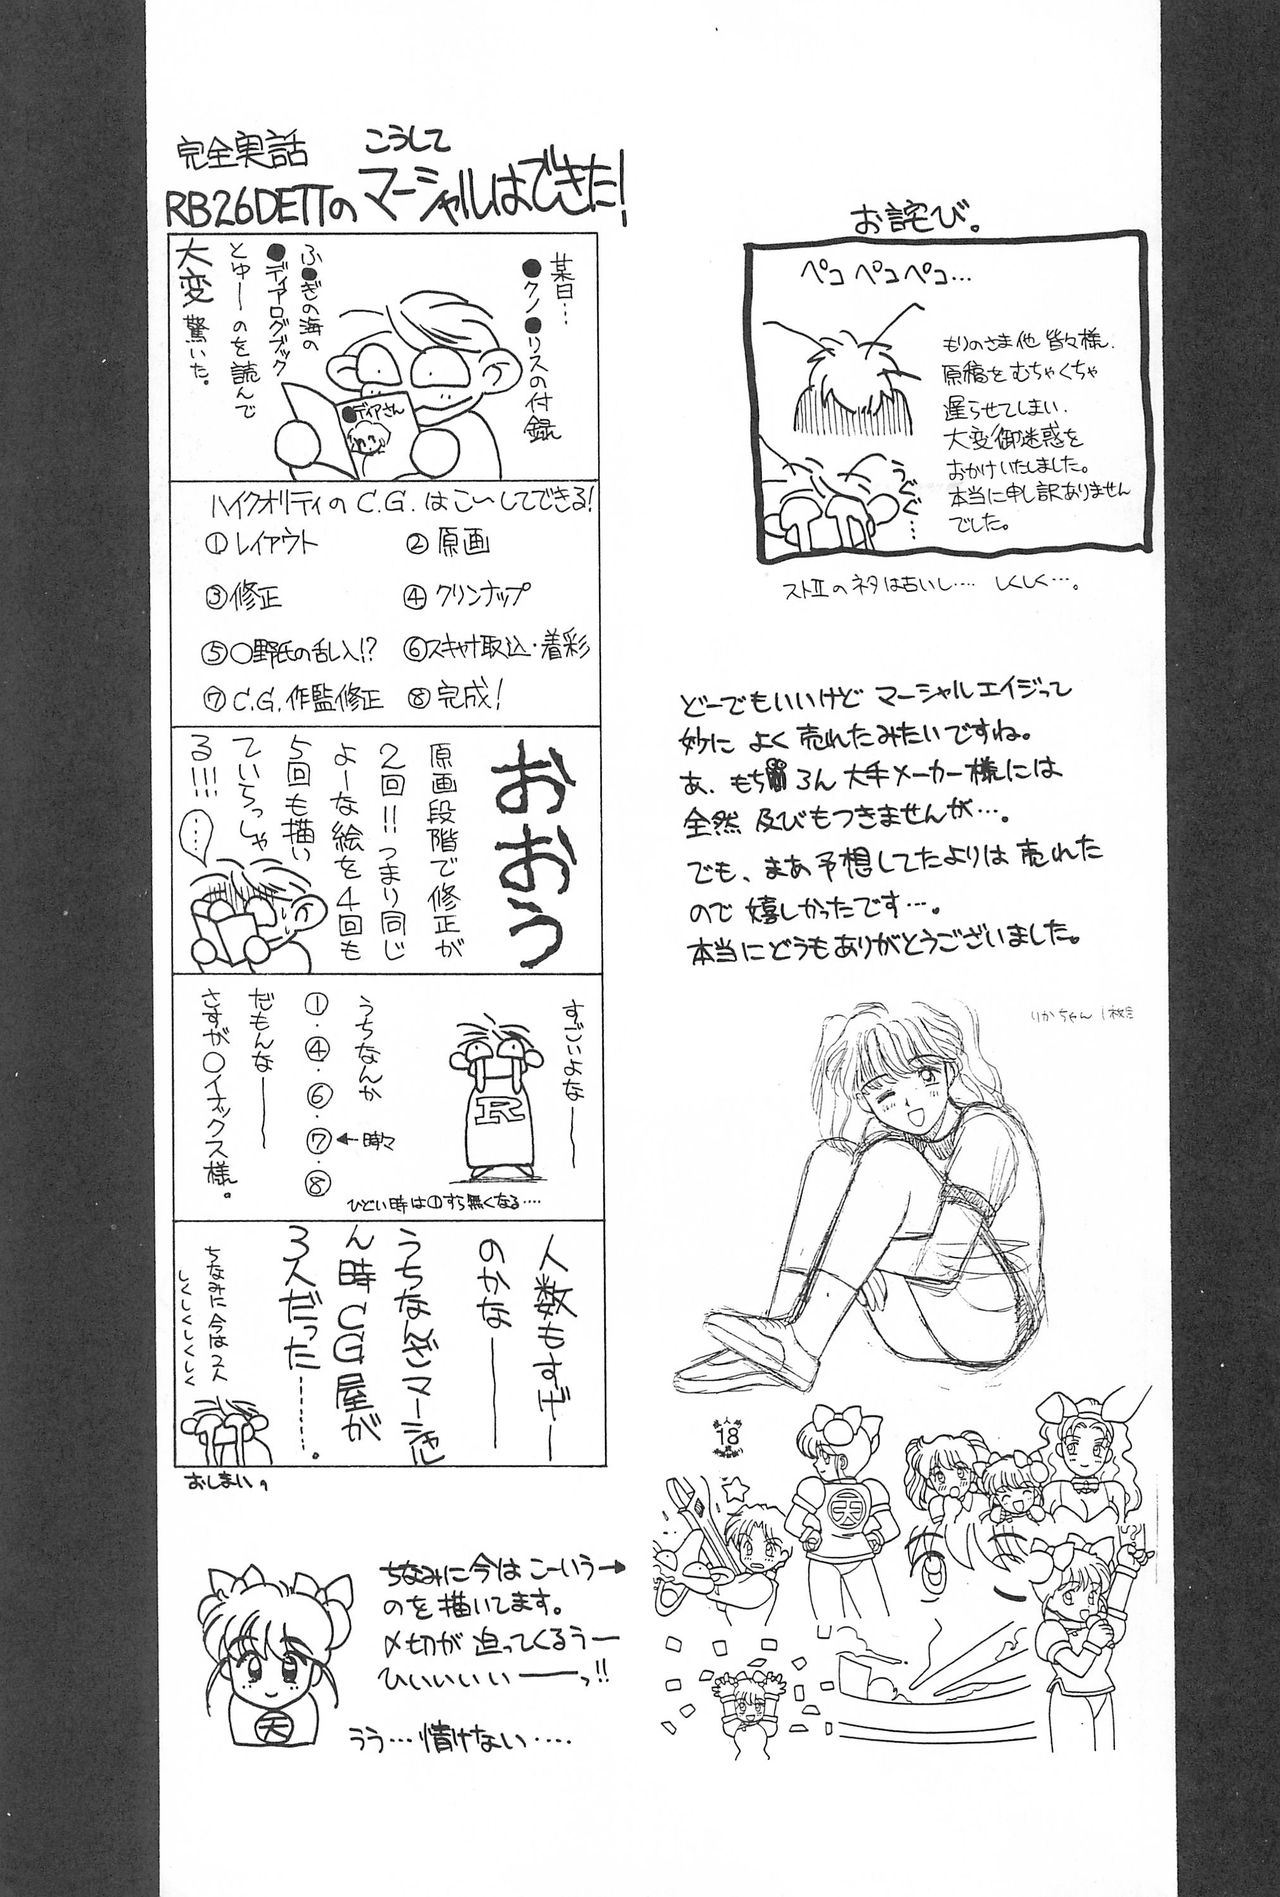 完全実話
こうして
RB26DETTのマーシャルはできた!
某日…
●クノ●リスの付録
ふ●ぎの海の
●ディアログブック
とゆーのを読んで
大変驚いた。
●ディアさん
ハイクオリティのC.G.はこ〜してできる!
①レイアウト
②原画
③修正
④クリンナップ
⑤○野氏の乱入!?
⑥スキャナ取込・着彩
⑦C.G.作監修正
⑧完成!
おおう
原画段階で修正が
2回!!つまり同じ
よーな絵を4回も
5回も描い
ていらっしゃ
る!!!
……
すごいよな――
R
うちなんか
①・④・⑥・⑦・⑧
←時々
だもんな――
さすが○イナックス様。
ひどい時は①すら無くなる‥‥
人数もすげー
のかな――
うちなんざマーシャル
ん時CG屋が
3人だった………。
ちなみに今は2人
しくしくしくしく
おしまい。
ちなみに今は こーいう→
のを描いてます。
〆切が 迫ってくるぅー
ひぃぃぃぃ――っ!!
うう…情けない‥‥‥
天
お詫び。
ペコ ペコペコ…
もりのさま他 皆々様、
原稿を むちゃくちゃ
遅らせてしまい、
大変御迷惑を
おかけいたしました。
本当に申し訳ありません
でした。
うぐぐぅ…
ストⅡのネタは古いし‥‥ しくしく…。
どーでもいいけど マーシャルエイジって
妙に よく 売れたみたいですね。
あ、もちろん 大手メーカー様には
全然 及びもつきませんが…。
でも、まあ予想してたよりは 売れた
ので 嬉しかったです…。
本当にどうもありがとうございました。
りかちゃん
18
天